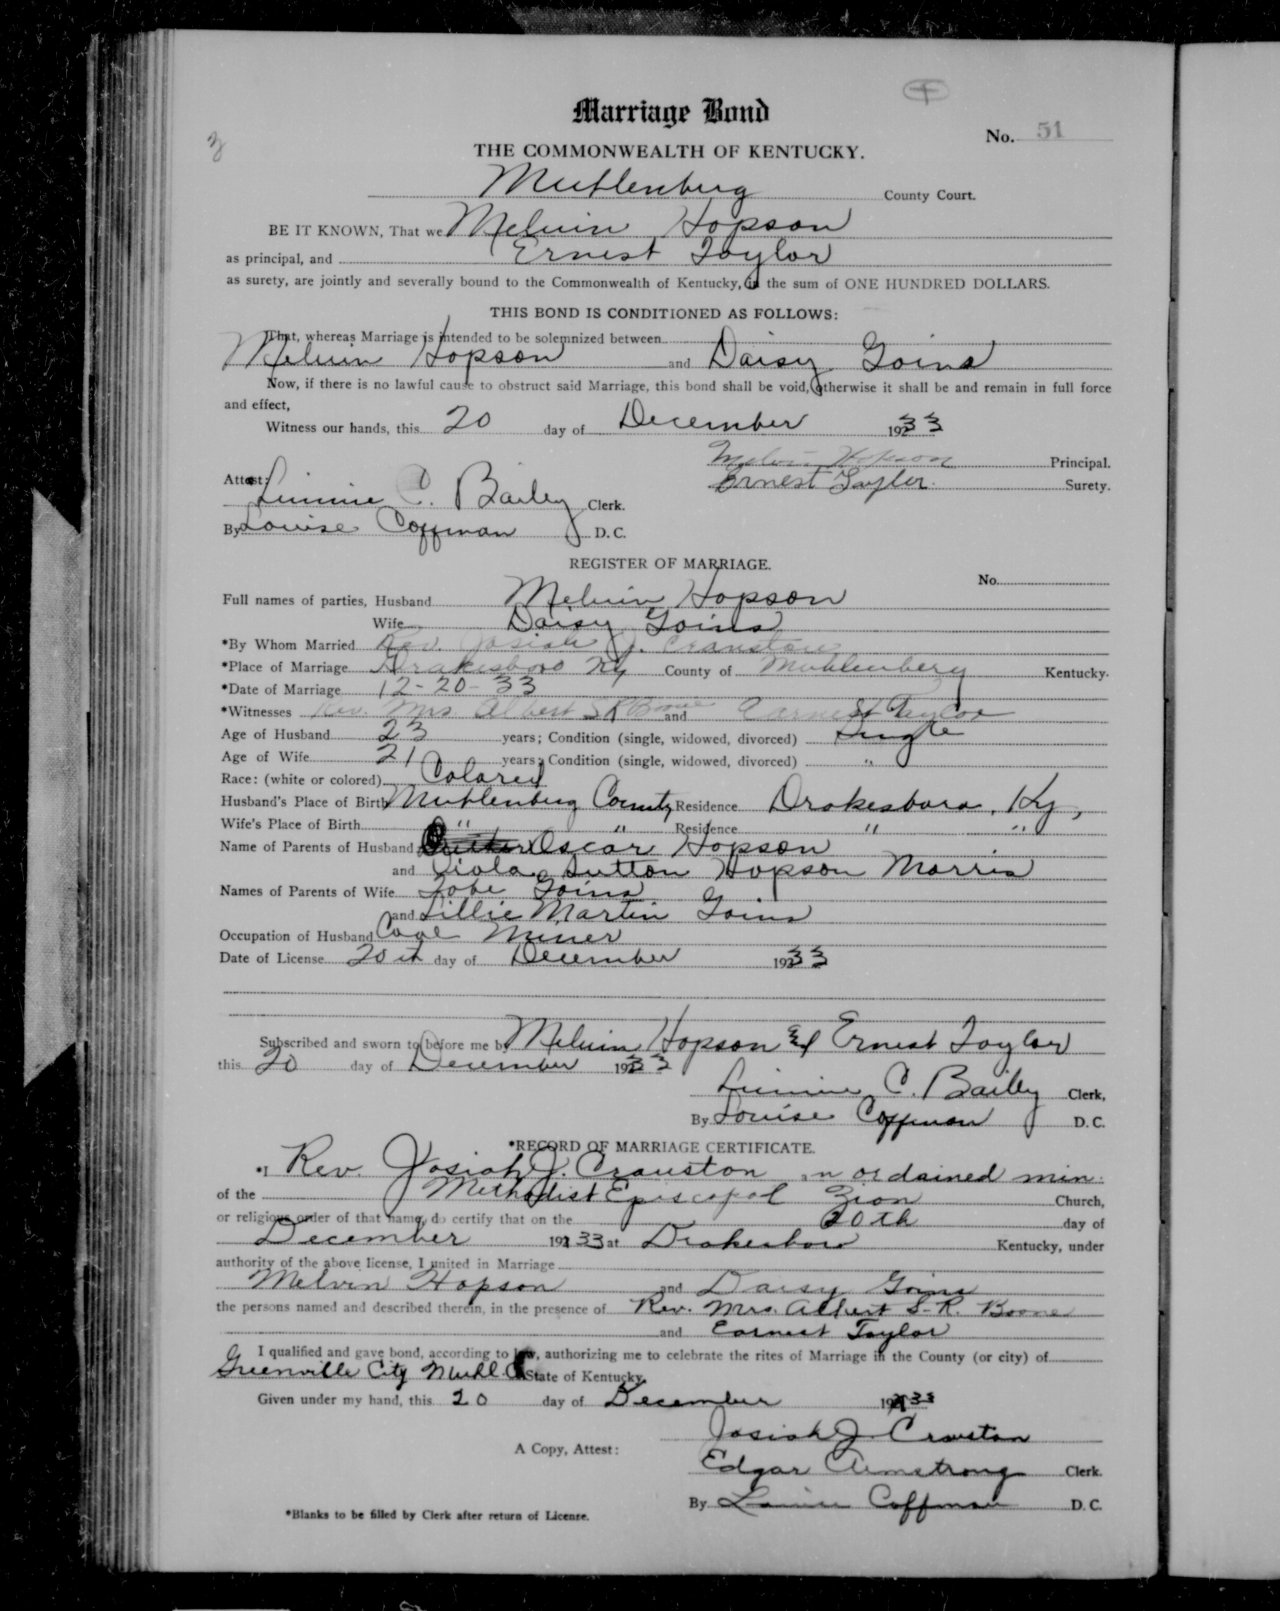 Marriage Bond
No. 51
THE COMMONWEALTH OF KENTUCKY.
Muhlenburg County Court.
BE IT KNOWN, That we Melvin Hopson
as principal, and Ernest Taylor
as surety, are jointly and severally bound to the Commonwealth of Kentucky, in the sum of ONE HUNDRED DOLLARS.
THIS BOND IS CONDITIONED AS FOLLOWS:
That, whereas Marriage is intended to be solemnized between
Melvin Hopson and Daisy Goins
Now, if there is no lawful cause to obstruct said Marriage, this bond shall be void, otherwise it shall be and remain in full force
and effect,
Witness our hands, this 20 day of December 1933
Melvin Hopson Principal.
Attest: Ernest Tayler Surety.
C. Bailey Clerk.
By Louise Coffman D. C.
REGISTER OF MARRIAGE.
No.
Full names of parties, Husband Melvin Hopson
Wife Daisy Goins
*By Whom Married Rev. Josiah J. Cranston
*Place of Marriage Drakesboro Ky County of Muhlenberg Kentucky.
*Date of Marriage 12-20-33
*Witnesses Rev. Mrs. Albert S R Boone and Earnest Taylor
Age of Husband 23 years; Condition (single, widowed, divorced) Single
Age of Wife 21 years; Condition (single, widowed, divorced) "
Race: (white or colored) Colored
Husband's Place of Birth Muhlenburg County Residence Drakesboro, Ky,
Wife's Place of Birth " " Residence " "
Name of Parents of Husband Oscar Hopson
and Viola Sutton Hopson Morris
Names of Parents of Wife Tobe Goins
and Lillie Martin Goins
Occupation of Husband Coal Miner
Date of License 20th day of December 1933
Subscribed and sworn to before me by Melvin Hopson & Ernest Taylor
this 20 day of December 1933
C. Bailey Clerk,
By Louise Coffman D. C.
*RECORD OF MARRIAGE CERTIFICATE.
*I Rev. Josiah J. Cranston, an ordained min.
of the Methodist Episcopal Zion Church,
or religious order of that name, do certify that on the 20th day of
December 1933 at Drakesboro Kentucky, under
authority of the above license, I united in Marriage
Melvin Hopson and Daisy Goins
the persons named and described therein, in the presence of Rev. Mrs. Albert S. R. Boone
and Earnest Taylor
I qualified and gave bond, according to law, authorizing me to celebrate the rites of Marriage in the County (or city) of
Greenville City Muhl. State of Kentucky.
Given under my hand, this 20 day of December 1933
Josiah J. Cranston
A Copy, Attest:
Edgar Armstrong Clerk.
By Louise Coffman D. C.
*Blanks to be filled by Clerk after return of License.